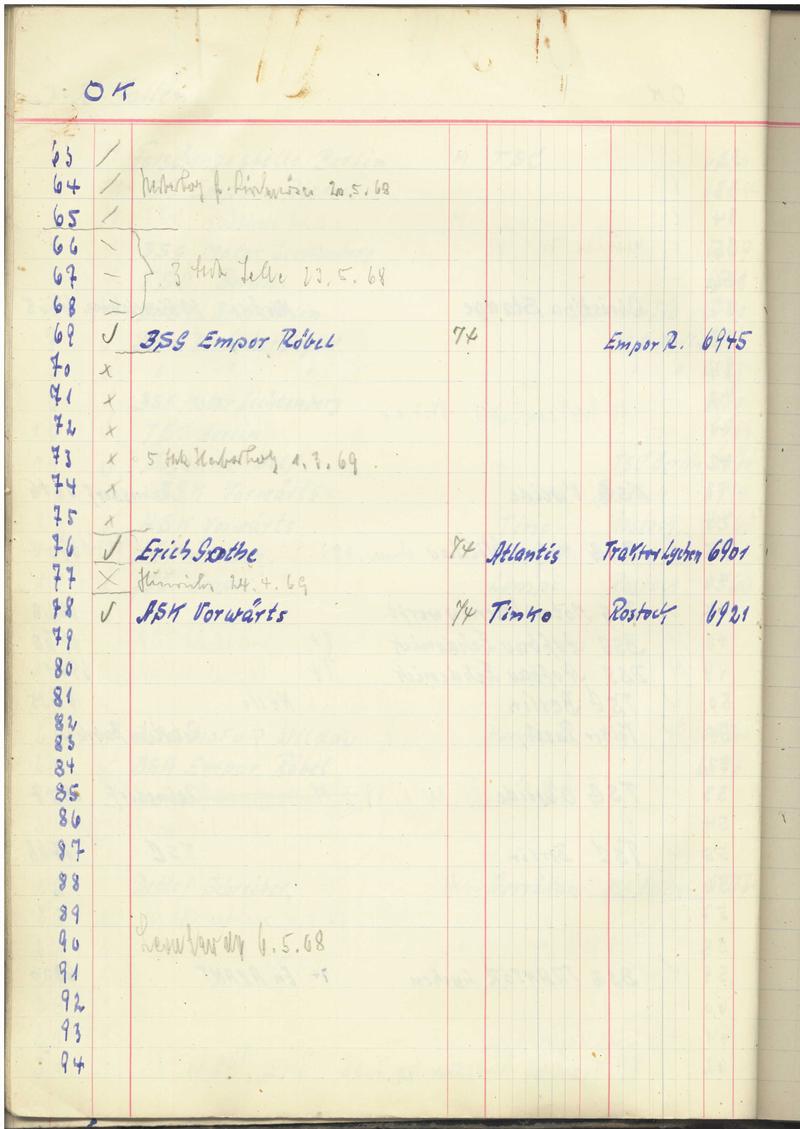 OK
63 /
64 / 20.5.68
65 /
66 -
67 - 3 23.5.68
68 =
69 ✓ BSG Empor Röbel 74 Empor R. 6945
70 x
71 x
72 x
73 x 5 1.3.69
74 x
75 x
76 ✓ Erich Gothe 74 Atlantis Traktor Lychen 6901
77 x Hinrichs 24.4.69
78 ✓ ASK Vorwärts 74 Timko Rostock 6921
79
80
81
82
83
84
85
86
87
88
89
90 6.5.68
91
92
93
94